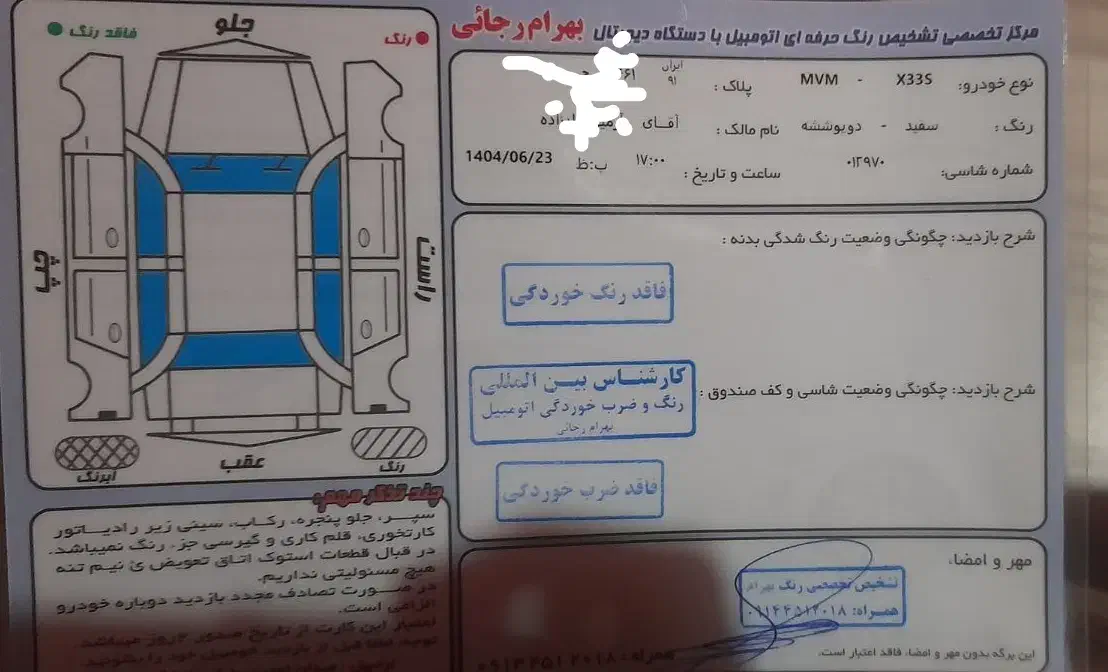 مرکز تخصصی تشخیص رنگ حرفه ای اتومبیل با دستگاه دیجیتال بهرام رجائی
نوع خودرو: MVM - X33S
پلاک: ایران ۹۱
رنگ: سفید - دوپوششه
نام مالک: آقای
شماره شاسی: ۰۱۲۹۷۰
ساعت و تاریخ: ۱۷:۰۰ ب:ظ 1404/06/23
شرح بازدید: چگونگی وضعیت رنگ شدگی بدنه:
فاقد رنگ خوردگی
شرح بازدید: چگونگی وضعیت شاسی و کف صندوق:
کارشناس بین المللی
رنگ و ضرب خوردگی اتومبیل
بهرام رجائی
فاقد ضرب خوردگی
مهر و امضا:
تشخیص تخصصی رنگ بهرام
همراه: ۰۹۱۴۴۵۱۲۰۱۸
این برگه بدون مهر و امضاء فاقد اعتبار است.
همراه: ۰۹۱۴۴۵۱۲۰۱۸
رنگ
جلو
فاقد رنگ
راست
چپ
عقب
رنگ
آبرنگ
چند تذکر مهم:
سپر، جلو پنجره، رکاب، سینی زیر رادیاتور
کارتخوری، قلم کاری و گیرسی جزء رنگ نمیباشد.
در قبال قطعات استوک اتاق تعویض ی نیم تنه
هیچ مسئولیتی نداریم.
در صورت تصادف مجدد بازدید دوباره خودرو
الزامی است.
اعتبار این کارت از تاریخ صدور روز میباشد.